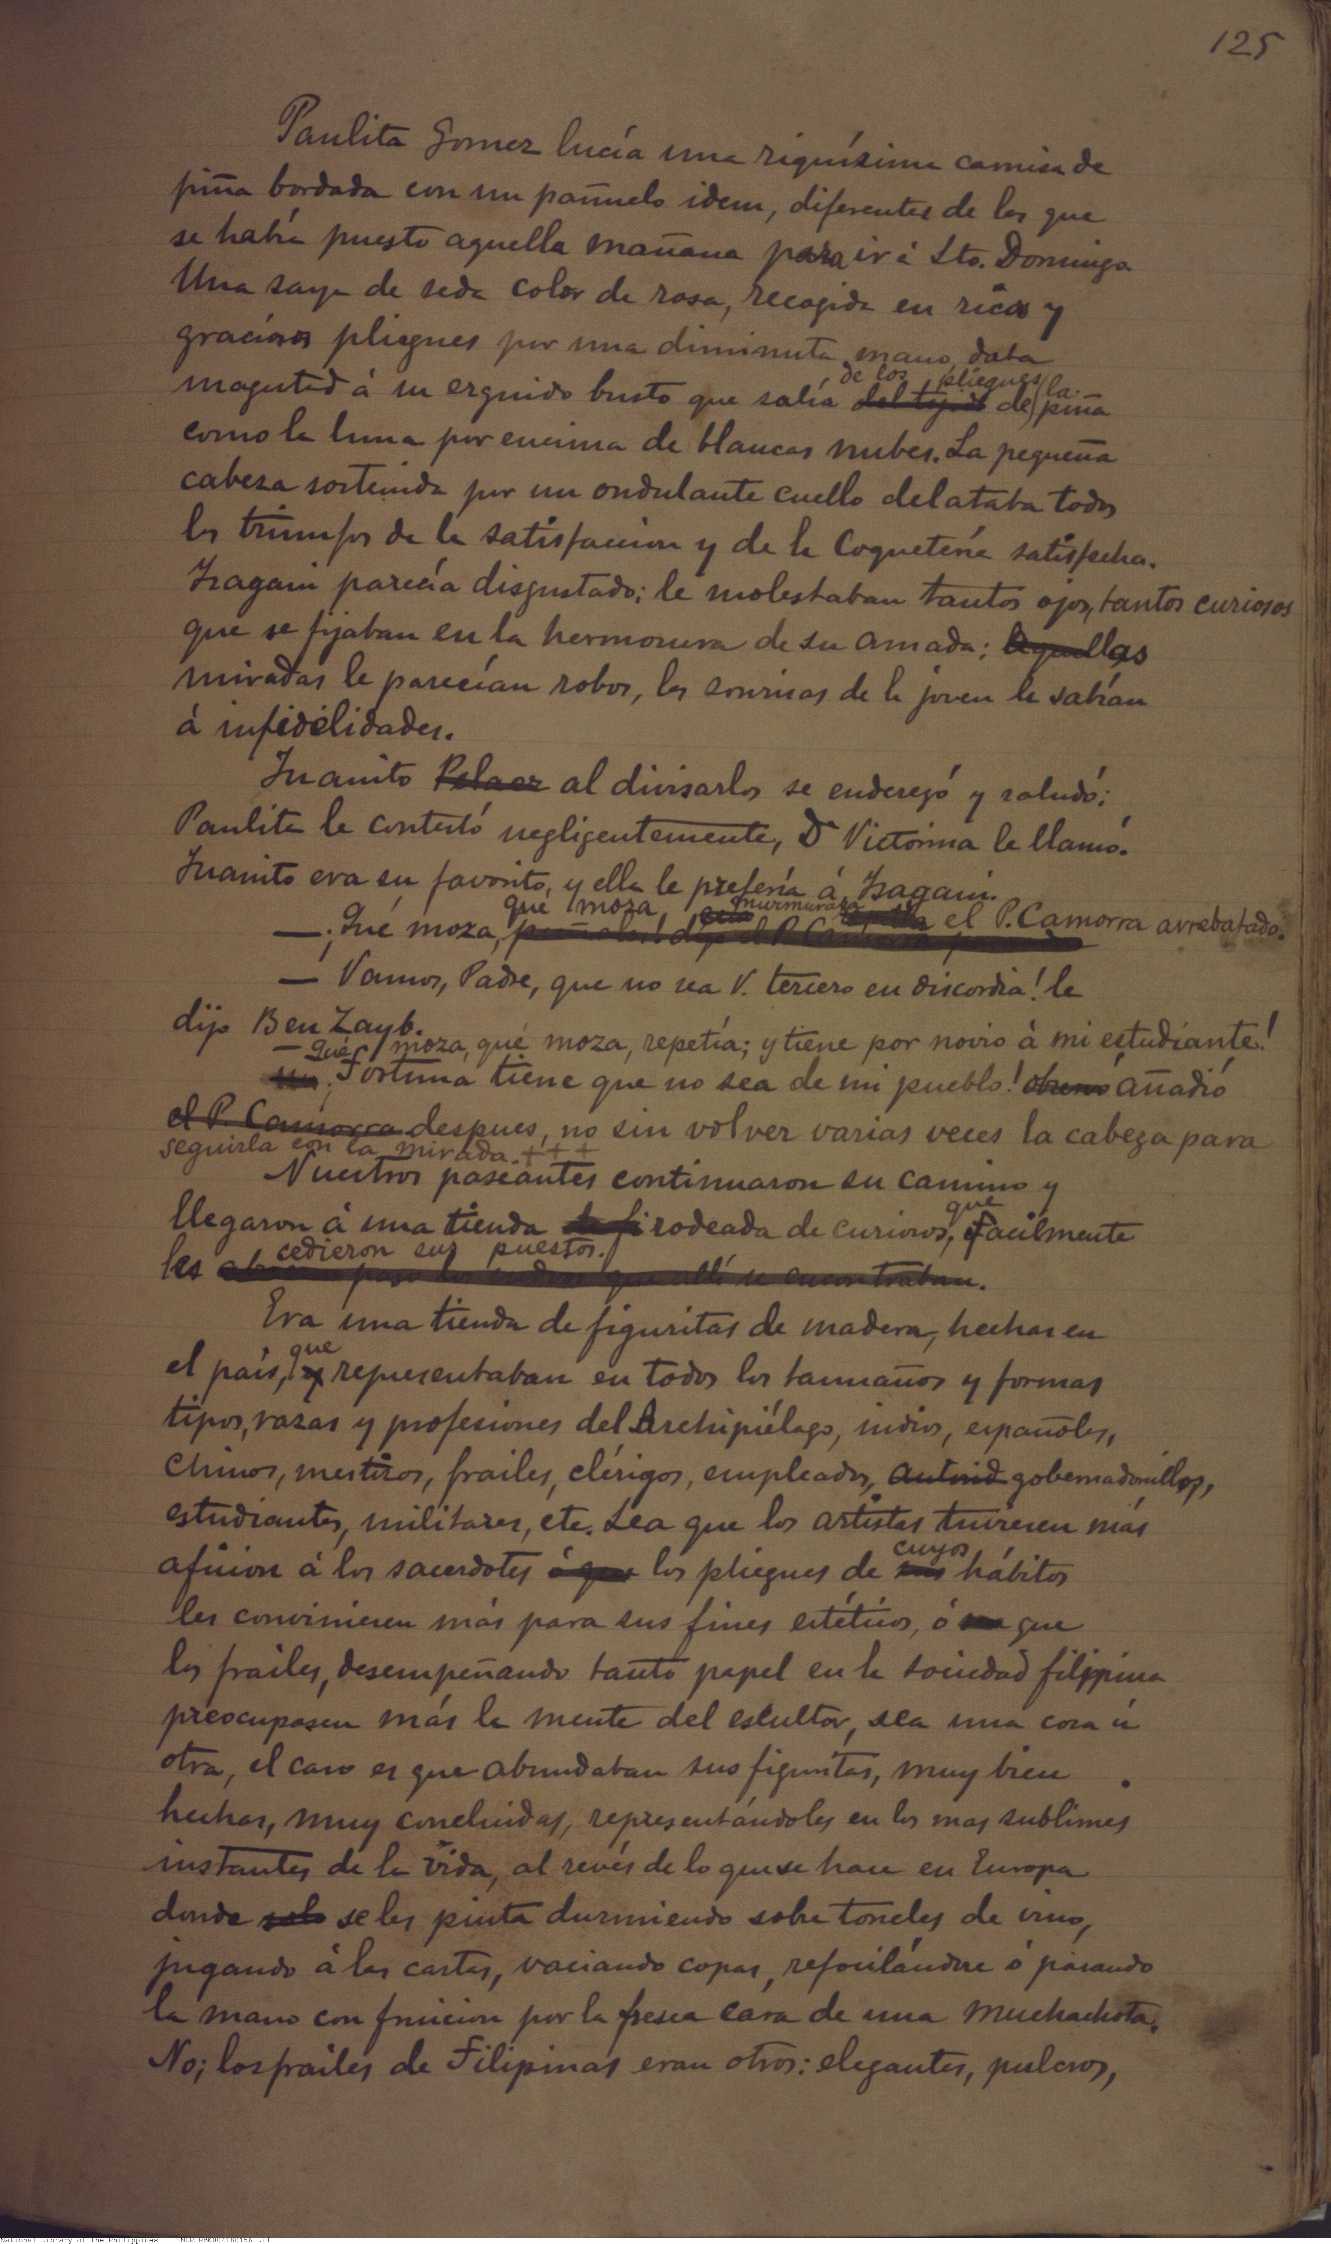 125
Paulita Gomez lucía una riquísima camisa de
piña bordada con un pañuelo idem, diferentes de los que
se había puesto aquella mañana para ir á Sto. Domingo
Una saya de seda color de rosa, recogida en ricos y
graciosos pliegues por una diminuta mano, daba
de los pliegues la
magestad á su erguido busto que salía del tejido de piña
como la luna por encima de blancas nubes. La pequeña
cabeza sostenida por un ondulante cuello delataba todos
los triunfos de la satisfaccion y de la coquetería satisfecha.
Isagani parecía disgustado; le molestaban tantos ojos, tantos curiosos
que se fijaban en la hermosura de su amada: Aquellas
miradas le parecían robos, las sonrisas de la joven le sabían
á infidelidades.
Juanito Pelaez al divisarlos se enderezó y saludó;
Paulita le contestó negligentemente, Dª Victorina le llamó.
Juanito era su favorito, y ella le prefería á Isagani.
qué moza, murmuraba
—¡Qué moza, el P. Camorra arrebatado.
— Vamos, Padre, que no sea V. tercero en discordia! le
dijo Ben Zayb.
— Qué moza, qué moza, repetía; y tiene por novio á mi estudiante!
¡Fortuna tiene que no sea de mi pueblo! añadió
el P. Camorra despues, no sin volver varias veces la cabeza para
seguirla con la mirada. +++
Nuestros paseantes continuaron su camino y
que
llegaron á una tienda rodeada de curiosos, facilmente
cedieron sus puestos.
les paso los indios que allí se encontraban.
Era una tienda de figuritas de madera, hechas en
que
el país, y representaban en todos los tamaños y formas
tipos, razas y profesiones del Archipiélago, indios, españoles,
chinos, mestizos, frailes, clérigos, empleados, gobernadorcillos,
estudiantes, militares, etc. Sea que los artistas tuviesen más
cuyos
aficion á los sacerdotes ó que los pliegues de sus hábitos
les conviniesen más para sus fines estéticos, ó que
los frailes, desempeñando tanto papel en la sociedad filipina
preocupasen más la mente del escultor, sea una cosa ú
otra, el caso es que abundaban sus figuritas, muy bien
hechas, muy concluidas, representándoles en los mas sublimes
instantes de la vida, al revés de lo que se hace en Europa
donde solo se les pinta durmiendo sobre toneles de vino,
jugando á las cartas, vaciando copas, refocilándose ó pasando
la mano con fruicion por la fresca cara de una muchachota.
No; los frailes de Filipinas eran otros: elegantes, pulcros,